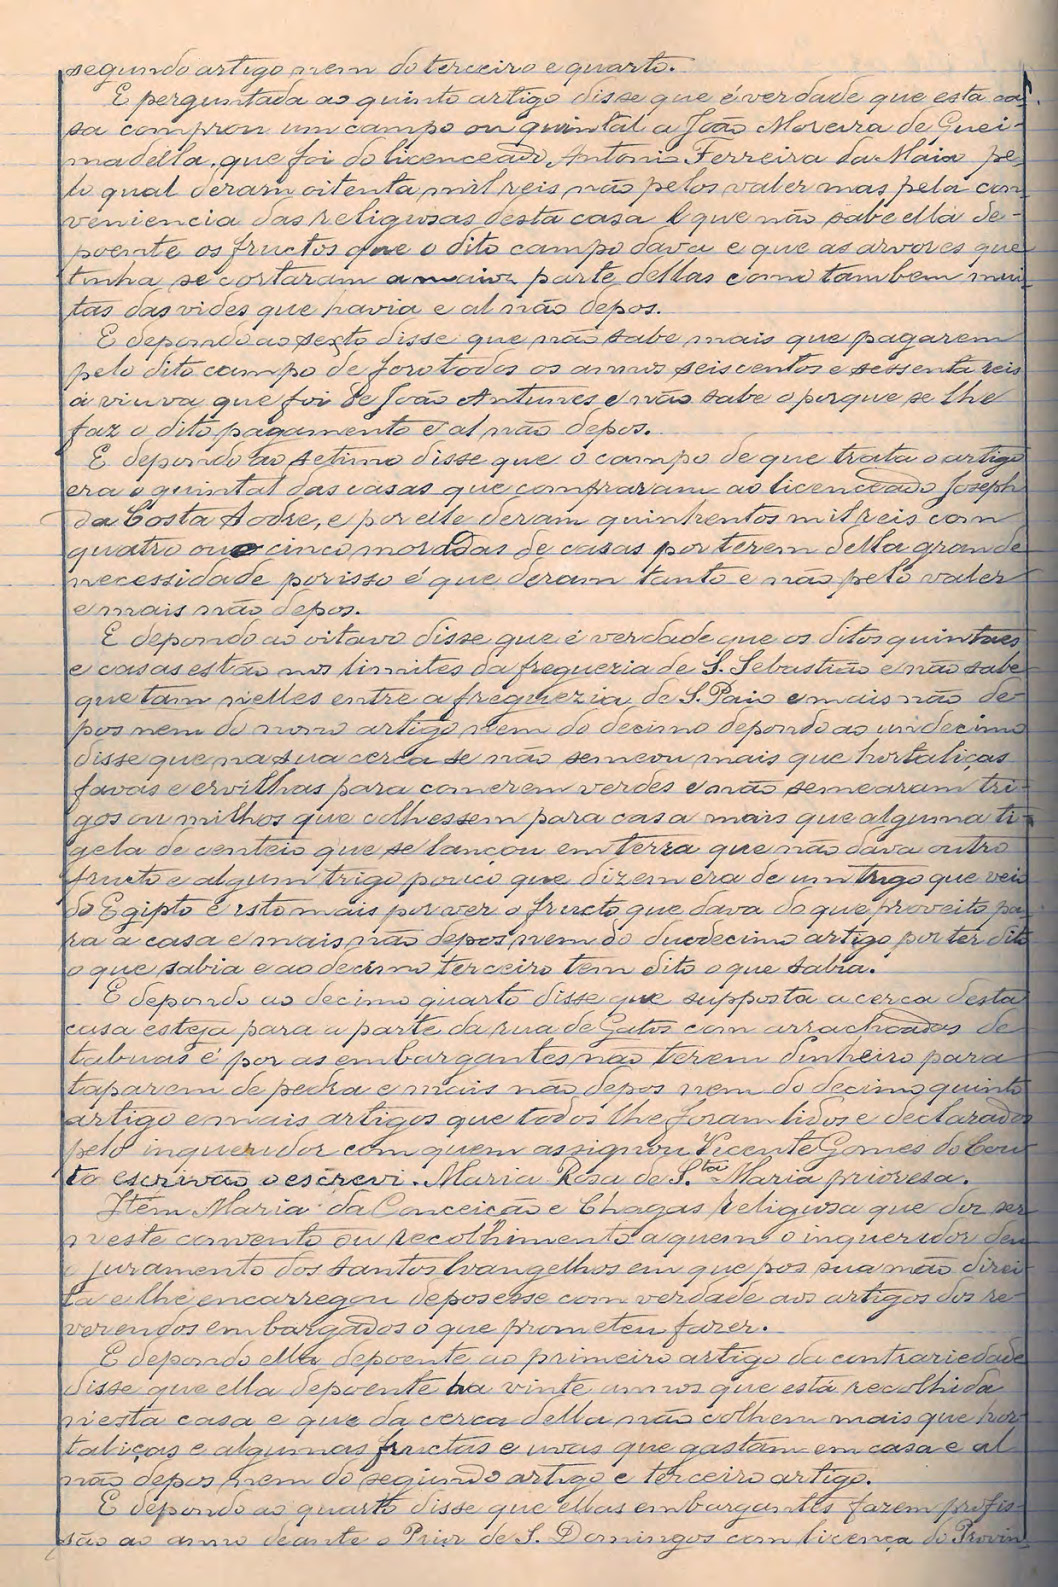 segundo artigo nem do terceiro e quarto.
E perguntada ao quinto artigo disse que é verdade que esta ca-
sa comprou um campo ou quintal a João Moreira de Guei-
madella, que foi do licenceado Antonio Ferreira da Maia pe-
lo qual deram oitenta mil reis não pelos valer mas pela con-
veniencia das religiosas desta casa e que não sabe ella de-
poente os fructos que o dito campo dava e que as arvores que
tinha se cortaram a maior parte dellas como tambem mui-
tas das vides que havia e al não depos.
E depondo ao sexto disse que não sabe mais que pagarem
pelo dito campo de foro todos os annos seis centos e sessenta reis
á viuva que foi de João Antunes e não sabe o porque se lhe
faz o dito pagamento e al não depos.
E depondo ao setimo disse que o campo de que trata o artigo
era o quintal das casas que compraram ao licenceado Joseph
da Costa Sodre, e por elle deram quinhentos mil reis com
quatro ou cinco moradas de casas por terem della grande
necessidade por isso é que deram tanto e não pelo valer
e mais não depos.
E depondo ao oitavo disse que é verdade que os ditos quintaes
e casas estão nos limites da freguezia de S. Sebastião e não sabe
que tam nelles entre a freguezia de S. Paio e mais não de-
pos nem do nono artigo nem do decimo depondo ao undecimo
disse que na sua cerca se não semeou mais que hortaliças
favas e ervilhas para comerem verdes e não semearam tri-
gos ou milhos que colhessem para casa mais que alguma ti-
gela de centeio que se lançou em terra que não dava outro
fructo e algum trigo pouco que dizem era de um trigo que veio
do Egipto e isto mais por ver o fructo que dava do que proveito pa-
ra a casa e mais não depos nem do duodecimo artigo por ter dito
o que sabia e ao decimo terceiro tem dito o que sabia.
E depondo ao decimo quarto disse que supposta a cerca desta
casa esteja para a parte da rua de Gatos com arrachoadas de
tabuas é por as embargantes não terem dinheiro para
taparem de pedra e mais não depos nem do decimo quinto
artigo e mais artigos que todos lhe foram lidos e declarados
pelo inqueridor com quem assignou Vicente Gomes do Cou-
to escrivão o escrevi. Maria Rosa de S.ta Maria prioresa.
Item Maria da Conceição e Chagas religiosa que diz ser
neste convento ou recolhimento a quem o inqueridor deu
o juramento dos Santos Evangelhos em que pos sua mão direi-
ta e lhe encarregou deposesse com verdade aos artigos dos re-
verendos embargados o que prometeu fazer.
E depondo ella depoente ao primeiro artigo da contrariedade
disse que ella depoente ha vinte annos que está recolhida
nesta casa e que da cerca della não colhem mais que hor-
taliças e algumas fructas e uvas que gastam em casa e al
não depos nem do segundo artigo e terceiro artigo.
E depondo ao quarto disse que ellas embargantes fazem profis-
são ao anno deante o Prior de S. Domingos com licença do Provin-